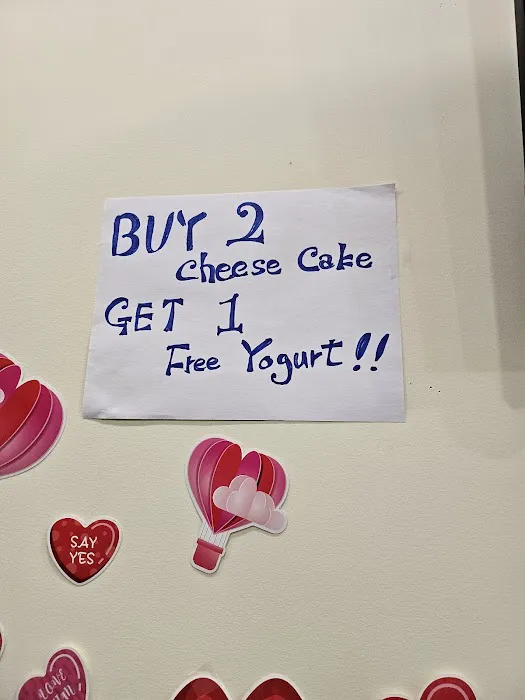 BUY 2
Cheese Cake
GET 1
Free Yogurt!!
SAY
YES